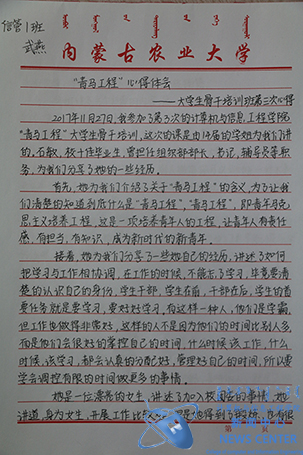 信管1班
武燕
内蒙古农业大学
"青马工程"心得体会
——大学生骨干培训班第三次心得
2017年11月27日,我参加了第3次的计算机与信息工程学院
"青马工程"大学生骨干培训,这次的课是由14届的学姐为我们讲
的。石敏,校十佳毕业生,曾担任组织部部长,书记,辅导员等职
务,为我们分享了她的一些经历。
首先,她为我们介绍了关于"青马工程"的含义,为了让我
们清楚的知道到底什么是"青马工程","青马工程",即青年马克
思主义培养工程,这是一项培养青年人的工程,让青年人有责任
感,有担当,有知识,成为新时代的新青年。
接着,她为我们分享了一些她自己的经历,讲述了如何
把学习与工作相协调,在工作的时候,不能忘了学习,毕竟要清
楚的认识自己的身份,学生干部,学生在前,干部在后,学生的首
要任务就是要学习,要好好学习,有这样一种人,他们是学霸,
但工作也做得非常好,这样的人不是因为他们的时间比别人多,
而是他们会很好的掌控自己的时间,什么时候该工作,什么
时候该学习,都会认真的分配好,管理好自己的时间,所以要
学会调控有限的时间做更多的事情。
她是一位漂亮的女生,讲述了加入校团委的事情,她
讲道,身为女生,开展工作比 她得到了 也有很
第 页
NEWS CENTER